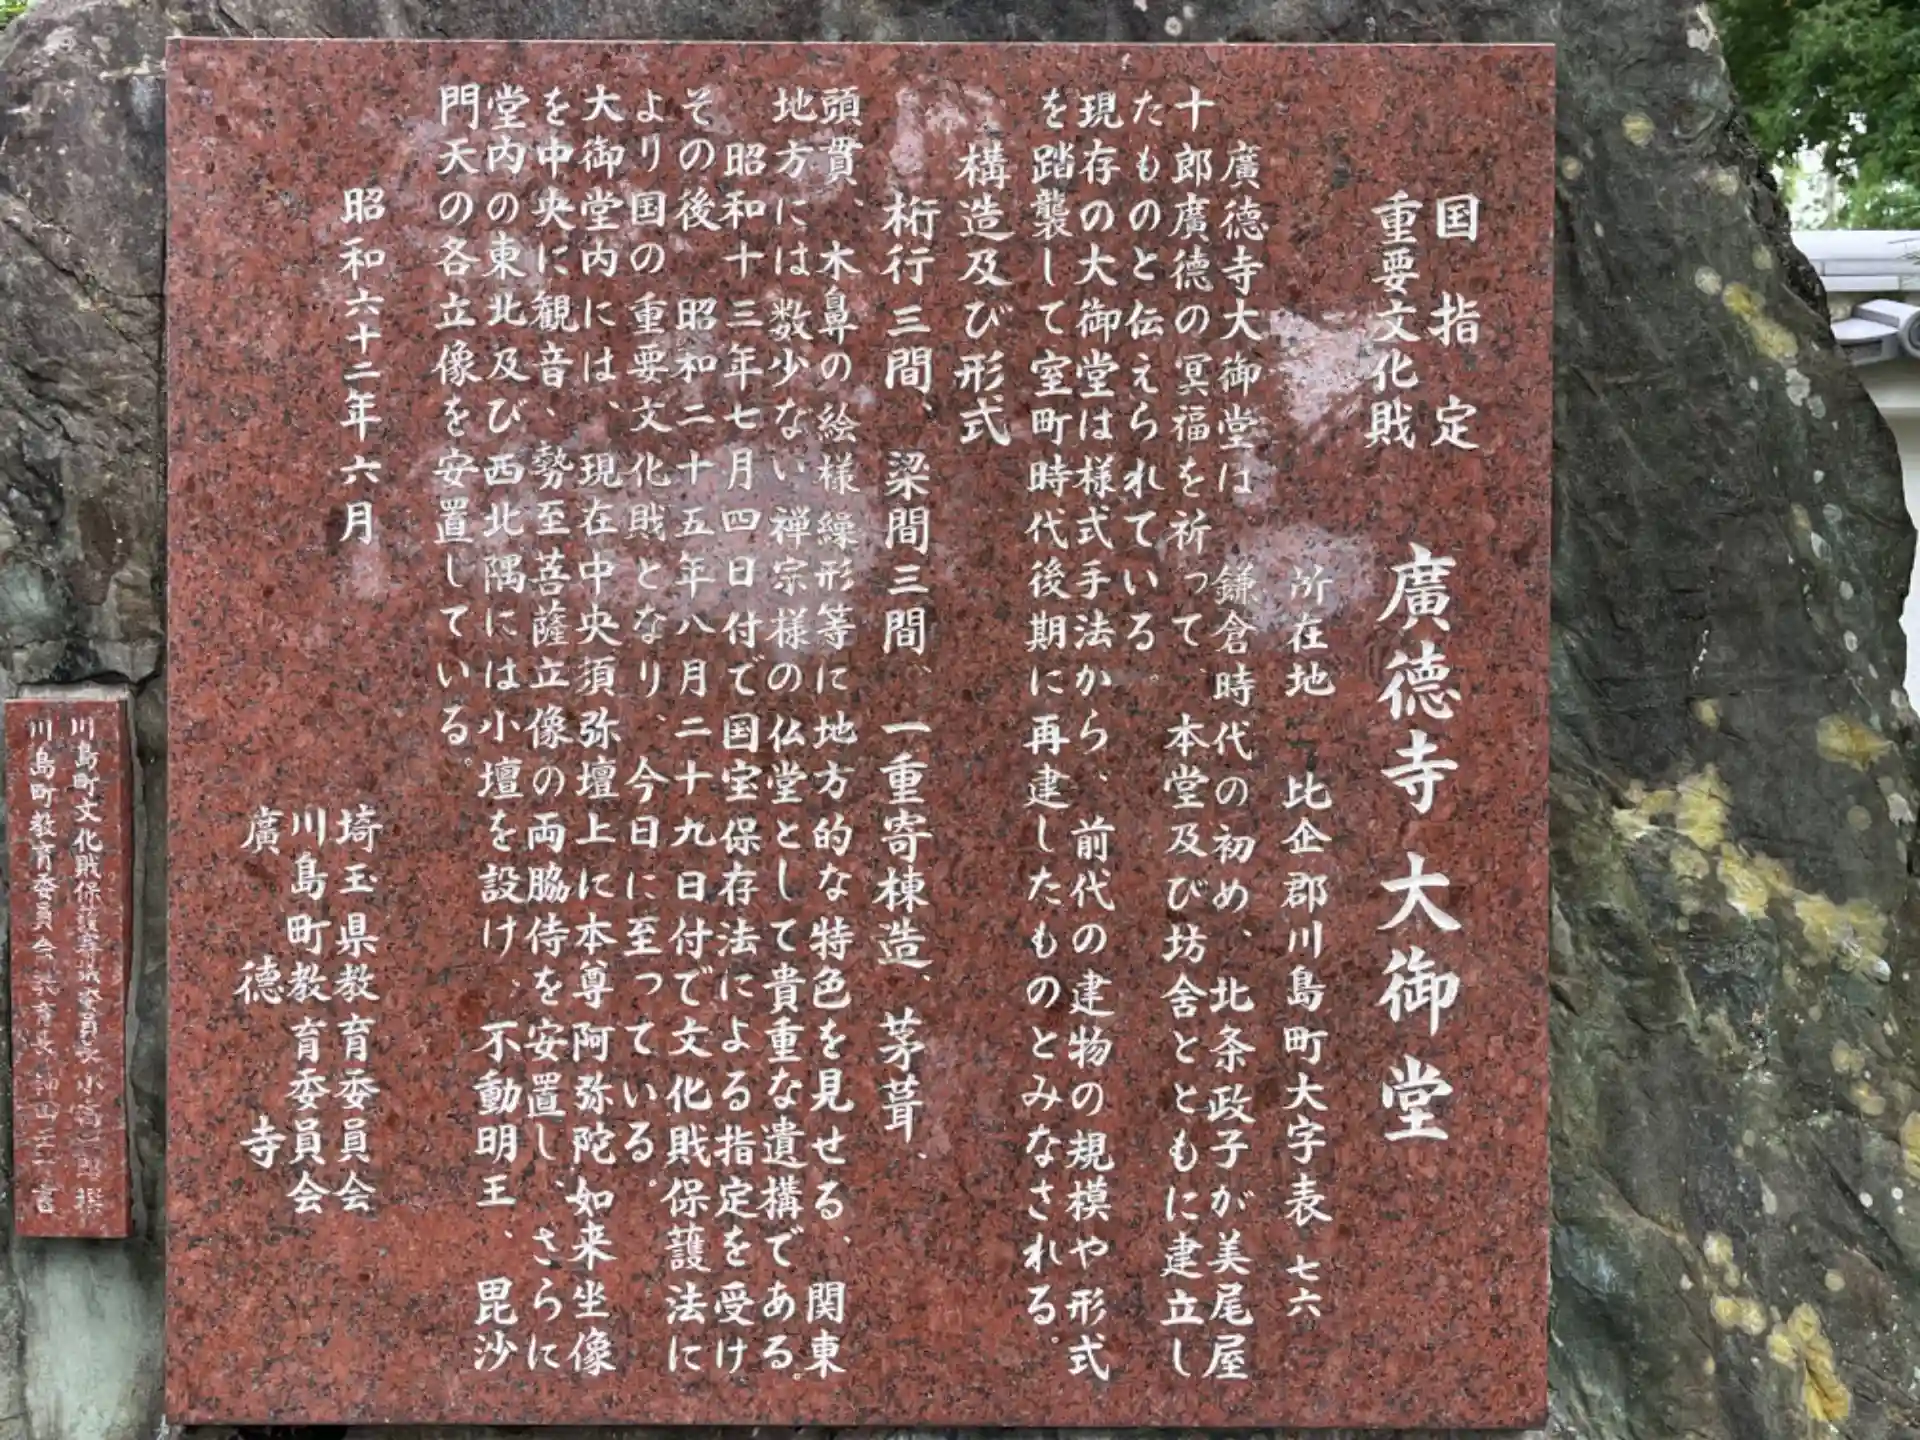 国指定
重要文化財
廣徳寺大御堂
所在地 比企郡川島町大字表七六
廣徳寺大御堂は、鎌倉時代の初め、北条政子が美尾屋
十郎廣徳の冥福を祈って、本堂及び坊舎とともに建立し
たものと伝えられている。
現存の大御堂は様式手法から、前代の建物の規模や形式
を踏襲して室町時代後期に再建したものとみなされる。
構造及び形式
桁行三間、梁間三間、一重寄棟造、茅葺、
頭貫、木鼻の絵様繰形等に地方的な特色を見せる、関東
地方には数少ない禅宗様の仏堂として貴重な遺構である。
昭和十三年七月四日付で国宝保存法による指定を受け
その後 昭和二十五年八月二十九日付で文化財保護法に
より国の重要文化財となり、今日に至っている。
大御堂内には、現在中央須弥壇上に本尊阿弥陀如来坐像
を中央に観音、勢至菩薩立像の両脇侍を安置し、さらに
堂内の東北及び西北隅には小壇を設け、不動明王、毘沙
門天の各立像を安置している。
昭和六十二年六月
埼玉県教育委員会
川島町教育委員会
廣徳寺
川島町文化財保護審議委員長小高一郎撰
川島町教育委員会教育長